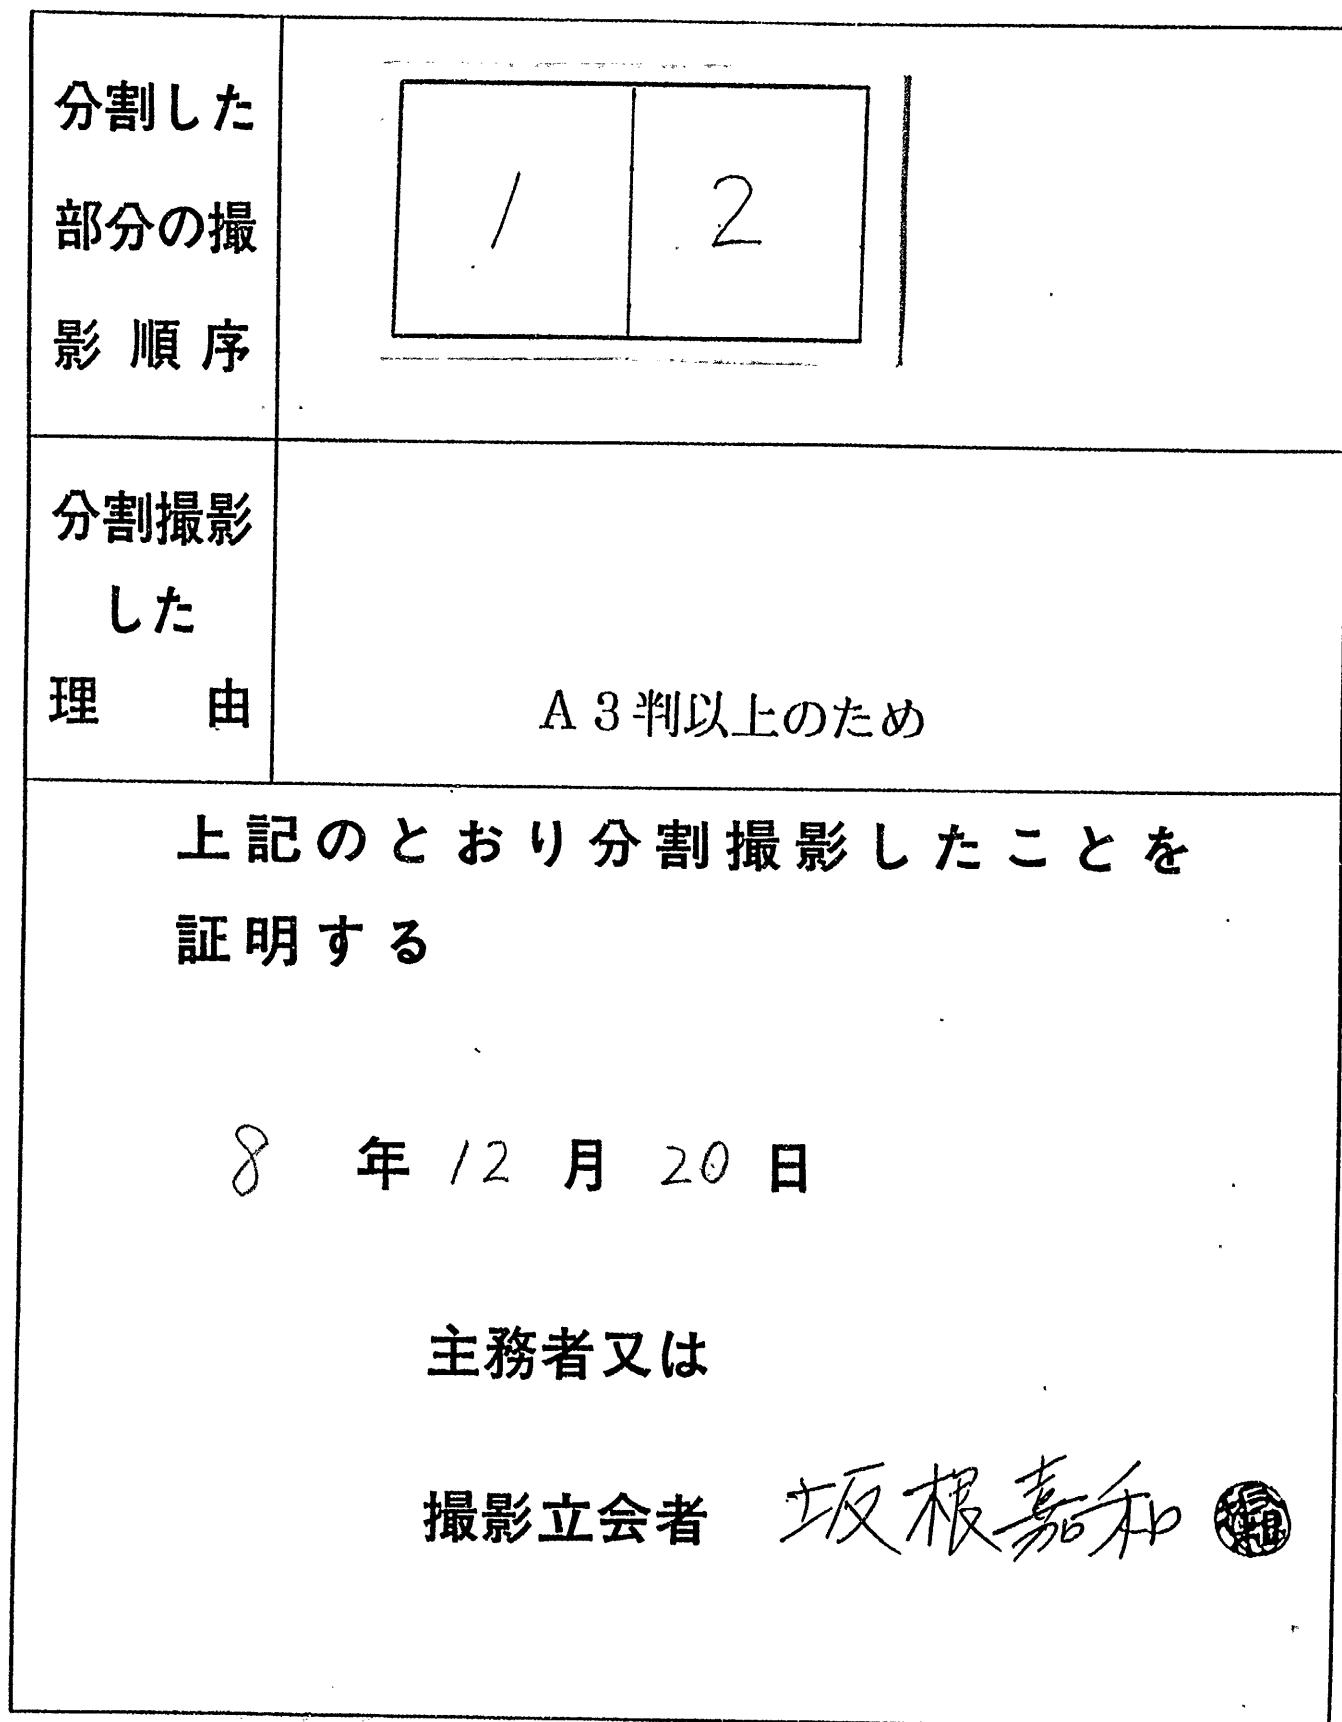 分割した
部分の撮
影順序
1 2
分割撮影
した
理由
A3判以上のため
上記のとおり分割撮影したことを
証明する
8 年 12 月 20 日
主務者又は
撮影立会者 坂根嘉和